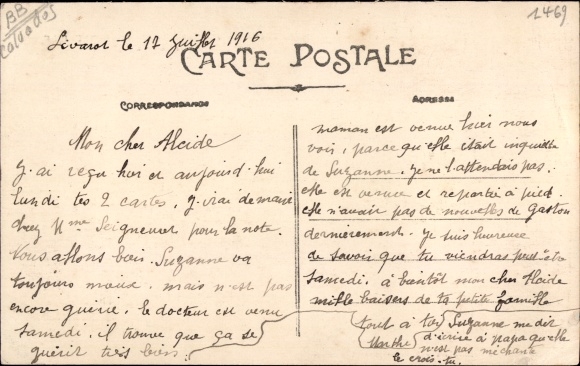 BB
Calvados
1469
Livarot le 17 Juillet 1916
CARTE POSTALE
CORRESPONDANCE
ADRESSE
Mon cher Alcide
J'ai reçu hier et aujourd'hui
lundi tes 2 cartes, j'irai demain
chez Mme Seigneurer pour la note.
Nous allons bien. Suzanne va
toujours mieux, mais n'est pas
encore guérie, le docteur est venu
Samedi, il trouve que ça se
guérit très bien.
maman est venue hier nous
voir, parce qu'elle était inquiète
de Suzanne, je ne l'attendais pas.
elle est venue et repartie à pied.
elle n'avait pas de nouvelles de Gaston
dernièrement. Je suis heureuse
de savoir que tu viendras peut-être
Samedi, à bientôt mon cher Alcide
mille baisers de ta petite famille
tout à toi
Marthe
Suzanne me dit
d'écrire à papa qu'elle
n'est pas méchante
le crois-tu.